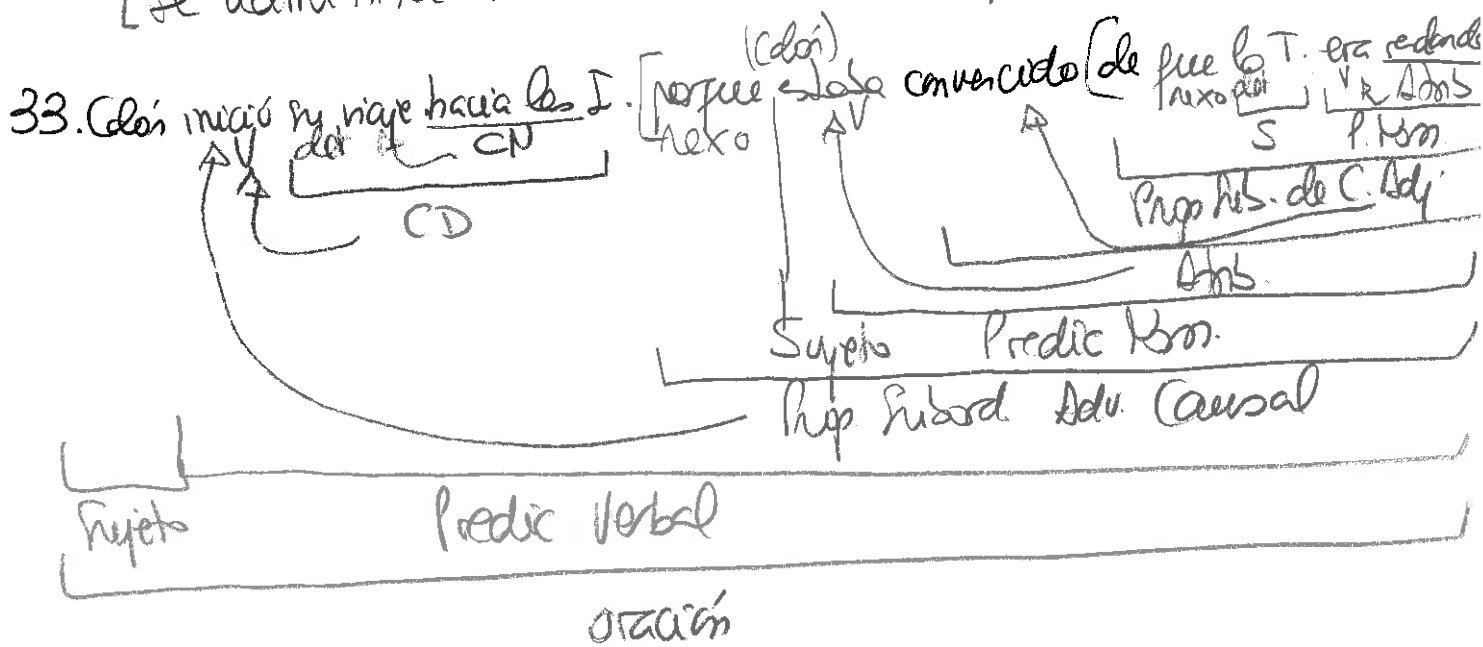 [se
(Colón)
33. Colón inició su viaje hacia las I. [porque estaba convencido [de que la T. era redonda
V det N CN nexo V nexo det V Atrib
CD S P. Nom
Prop Sub. de C. Adj
Atrib.
Sujeto Predic Nom.
Prop Subord Adv. Causal
Sujeto Predic Verbal
oración